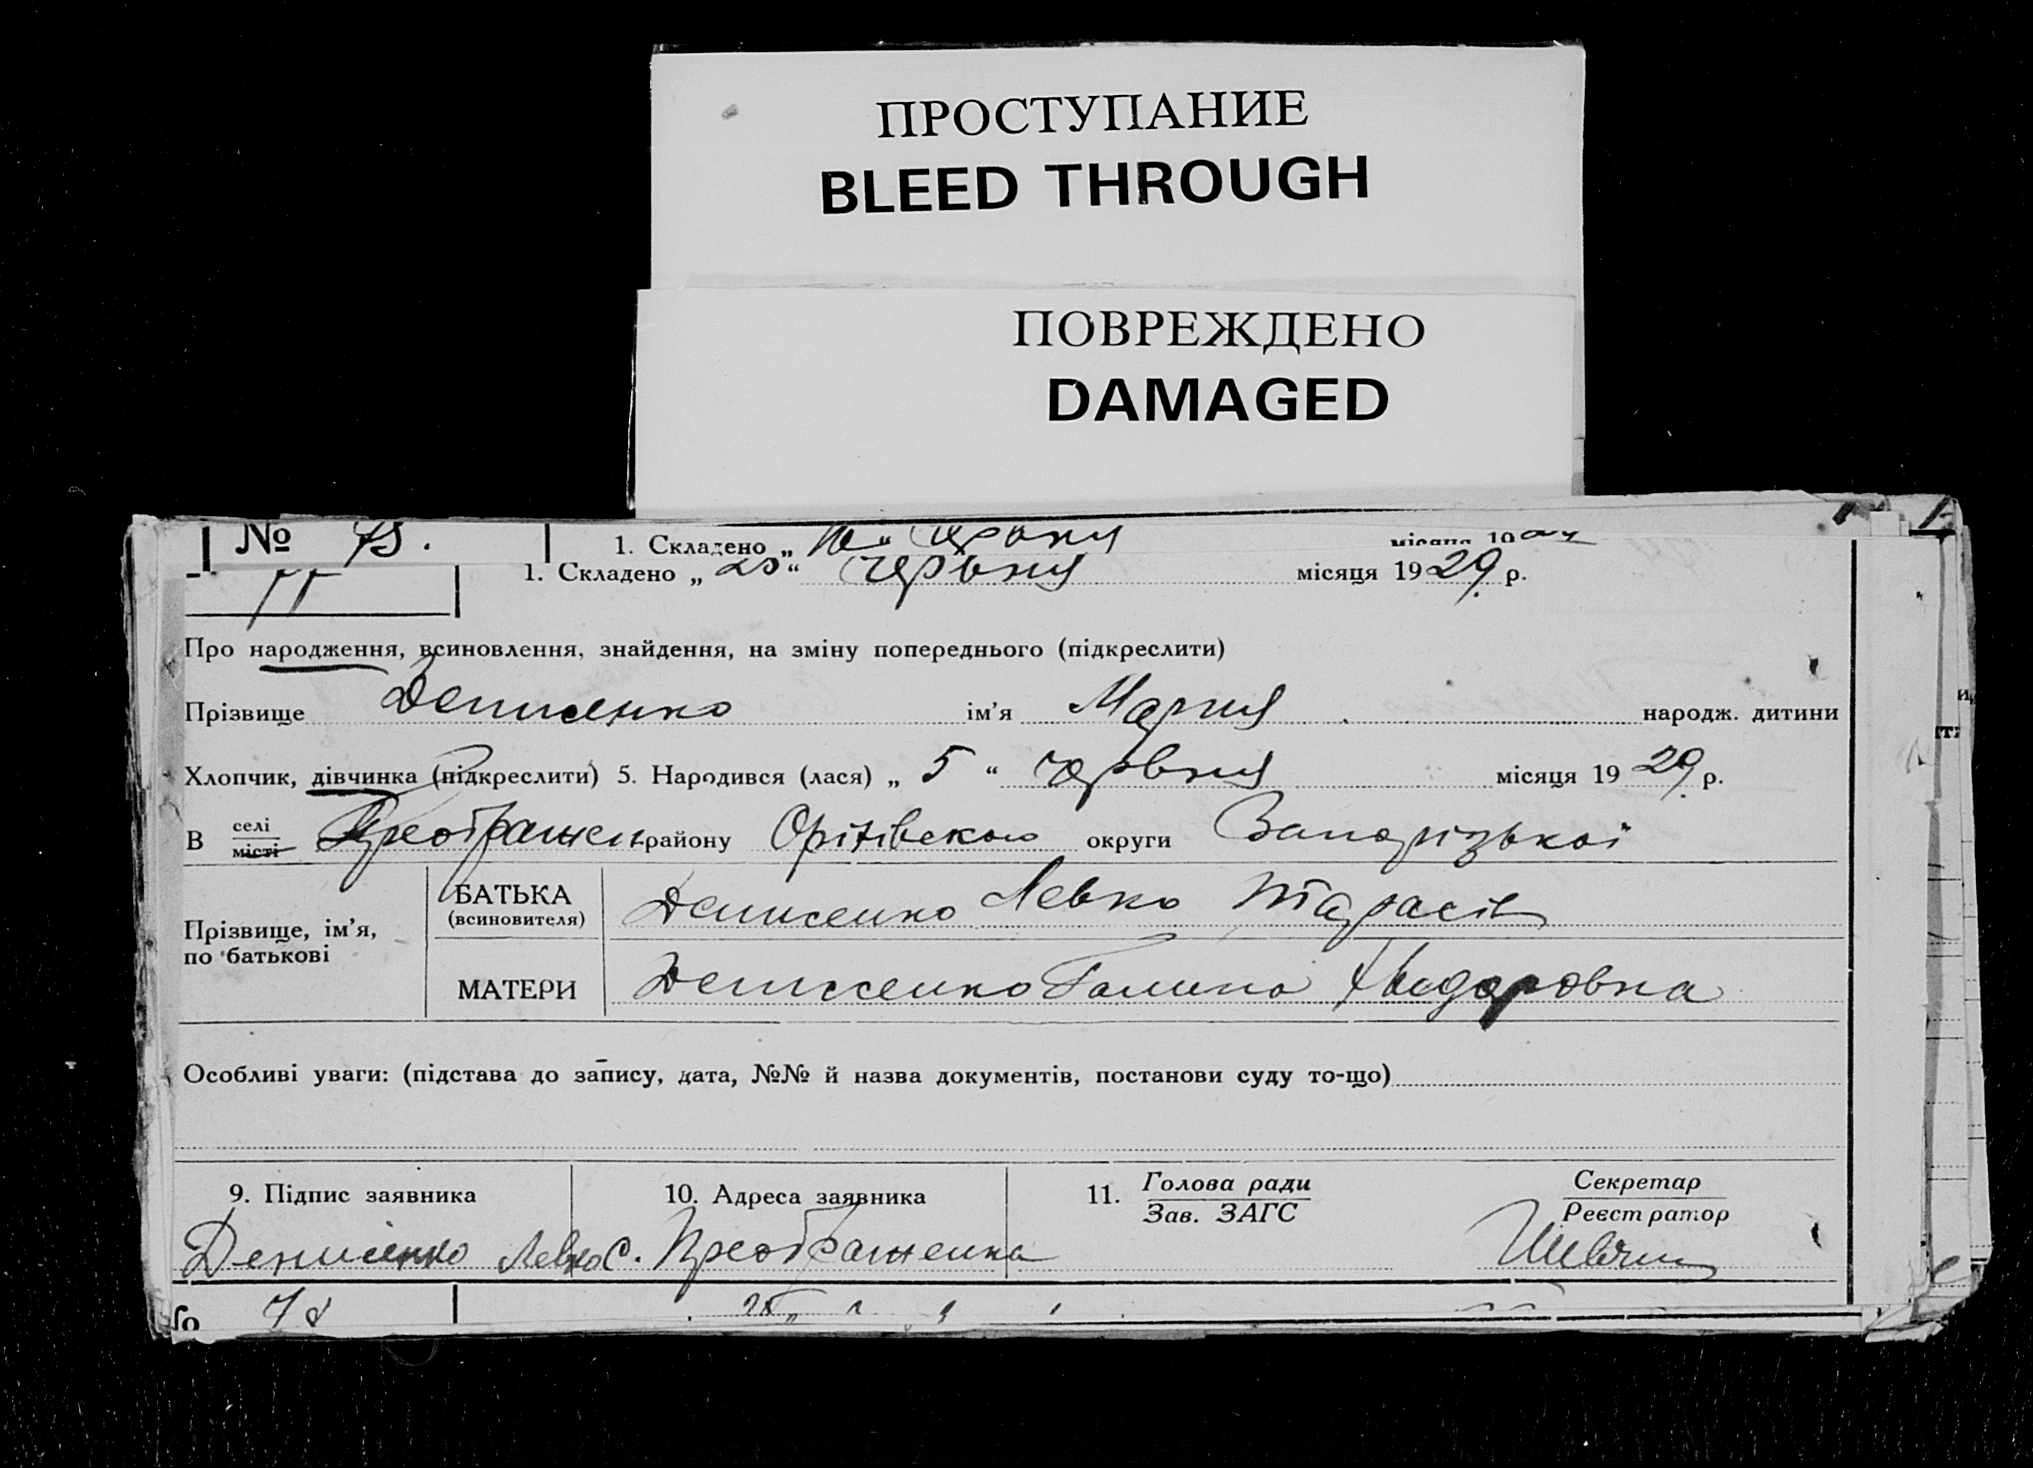 ПРОСТУПАНИЕ
BLEED THROUGH
ПОВРЕЖДЕНО
DAMAGED
№ 75. 1. Складено „ “ червня місяця 19
77 1. Складено „ 25 “ червня місяця 1929 р.
Про народження, всиновлення, знайдення, на зміну попереднього (підкреслити)
Прізвище Денисенко ім'я Мария народж. дитини
Хлопчик, дівчинка (підкреслити) 5. Народився (лася) „ 5 “ червня місяця 1929 р.
В селі місті Преображен району Оріхівского округи Запорізької
Прізвище, ім'я, по батькові
БАТЬКА (всиновителя) Денисенко Левко Тарасів
МАТЕРИ Денисенко Галина Хведоровна
Особливі уваги: (підстава до запису, дата, №№ й назва документів, постанови суду то-що)
9. Підпис заявника 10. Адреса заявника 11. Голова ради Секретар
Зав. ЗАГС Реєстратор
Денисенко Левко с. Преображенка
№ 78